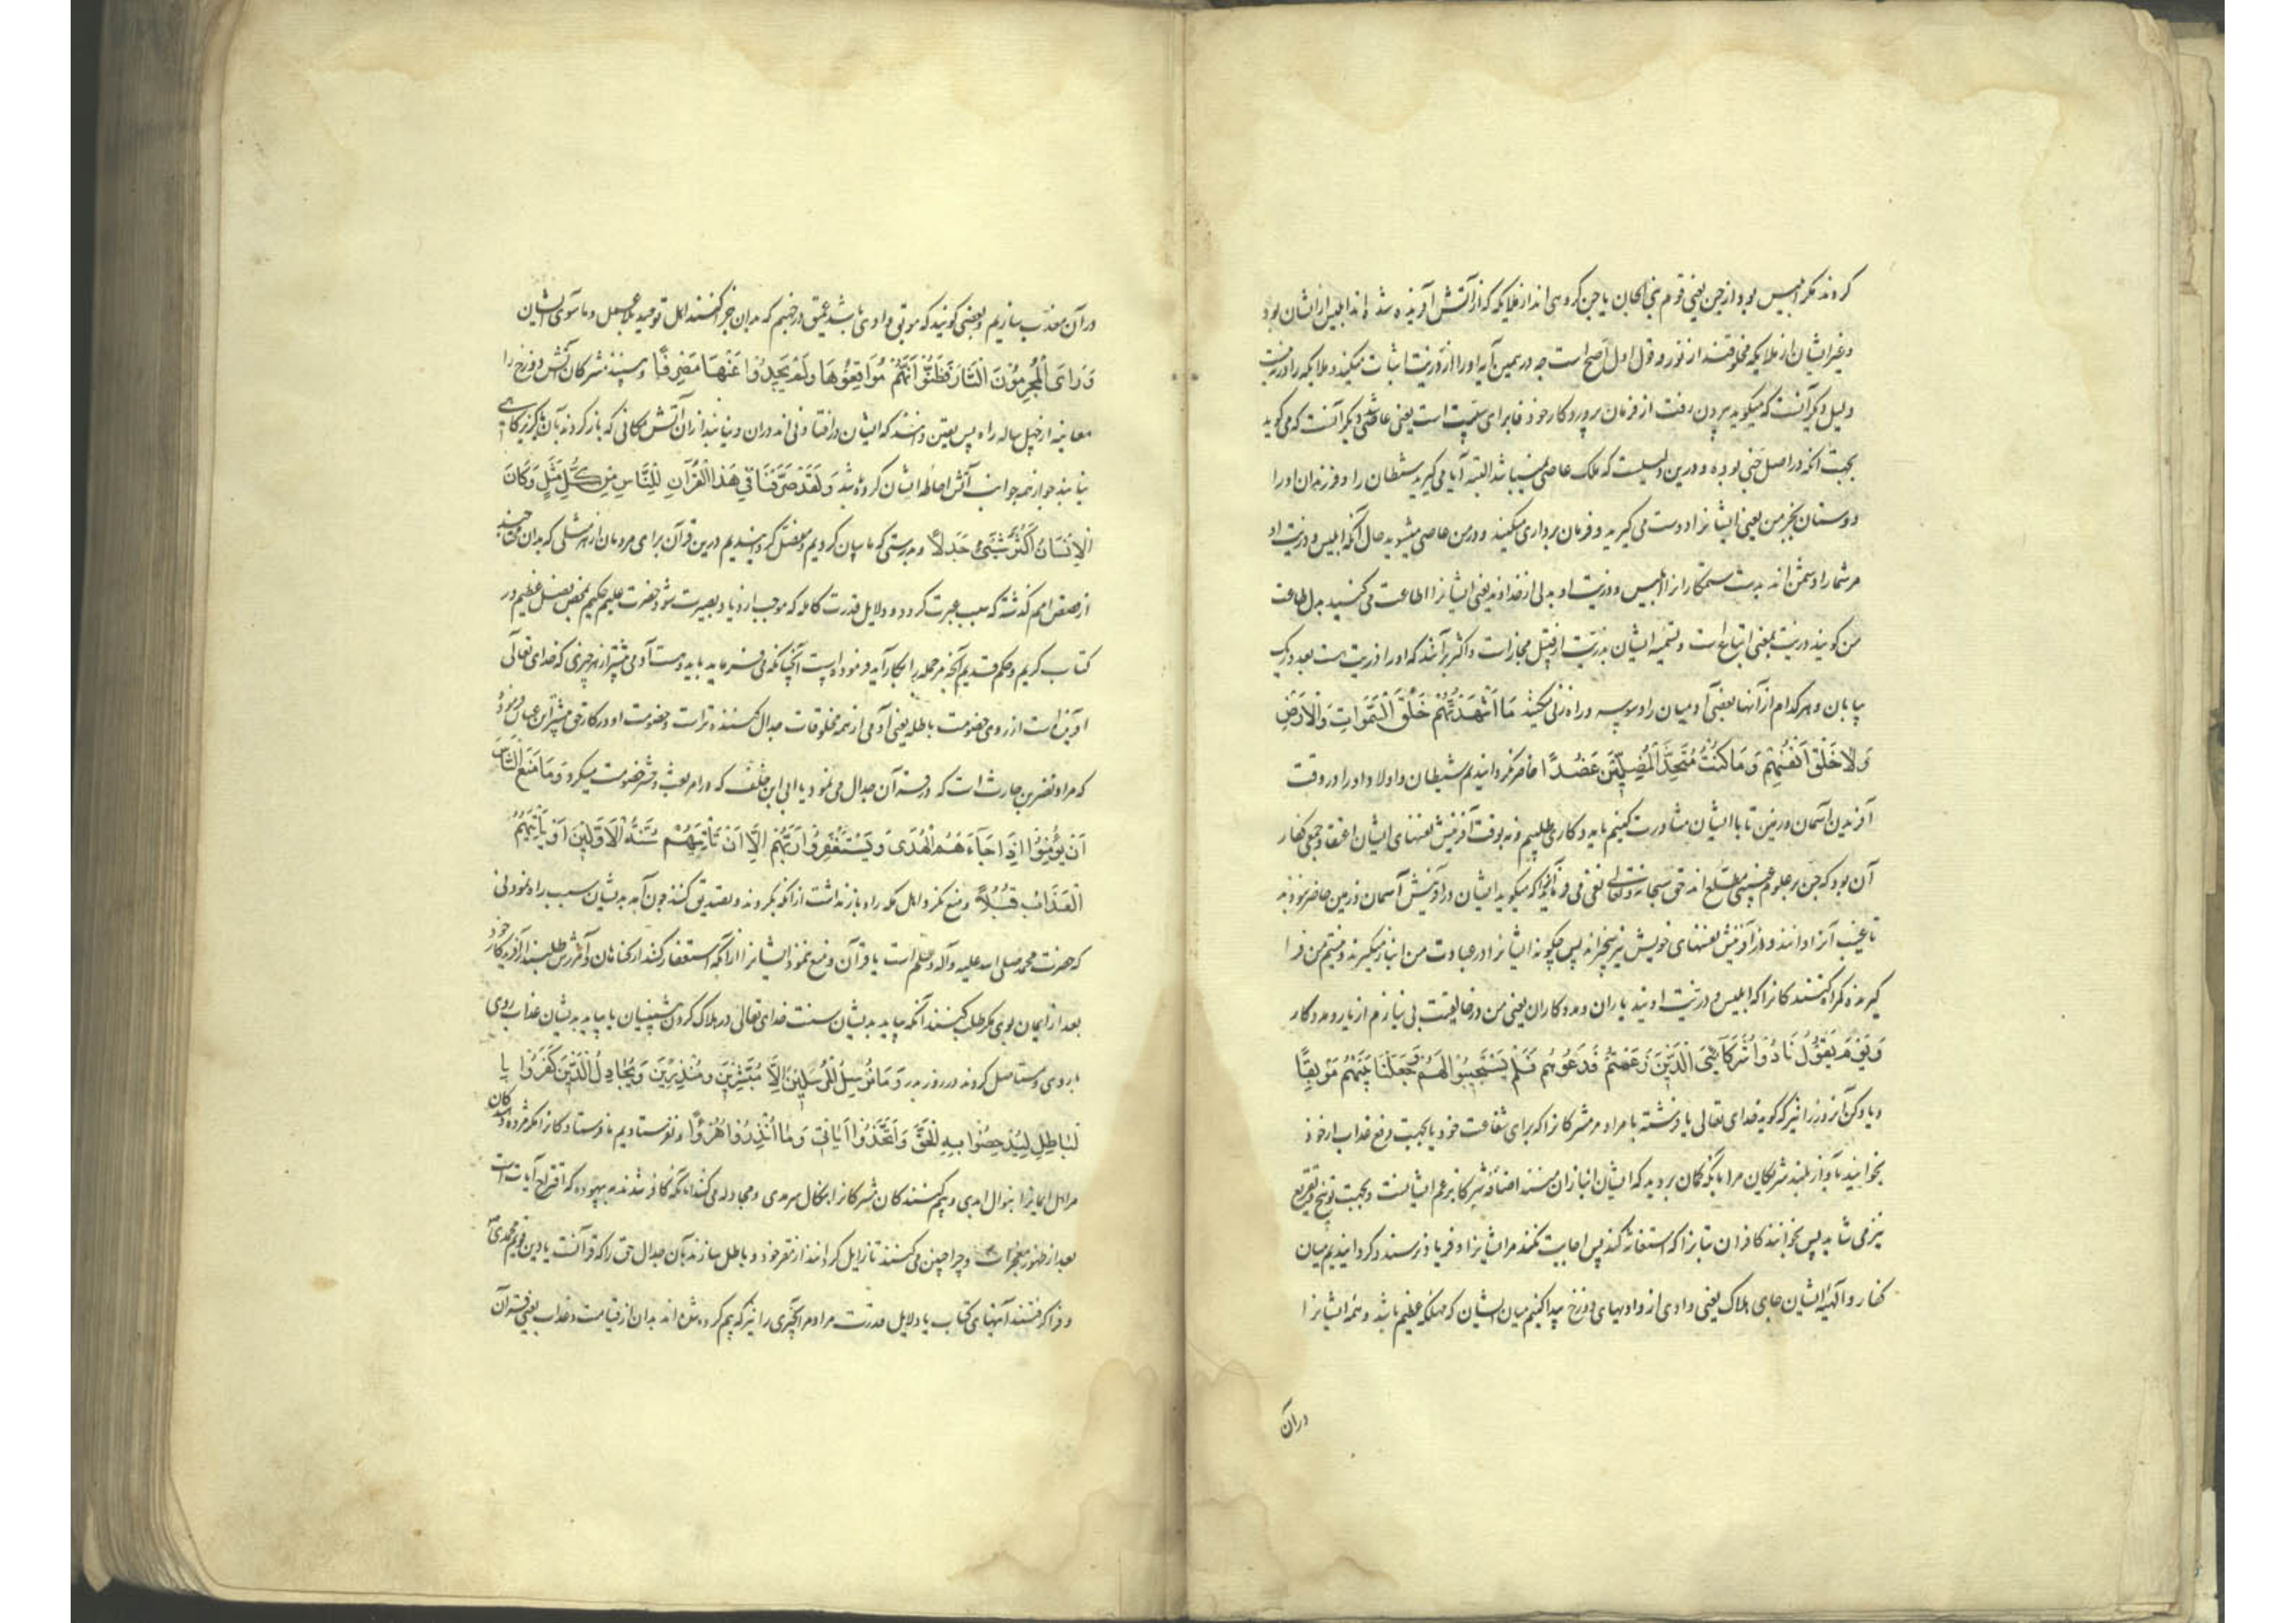 کردند مکر ابلیس بود از جن یعنی قوم بنی الجان یا جن کروهی اند از ملایکه که از آتش آفریده شده اند ابلیس ازیشان بود
و غیر ایشان از ملایکه مخلوقند از نور و قول اول اصح است چه در همین آیه او را ذریت اثبات میکند و ملایکه را ذریت نیست
دلیل دیکر آنست که میکوید بیرون رفت از فرمان پروردکار خود فا برای سببیت است یعنی عاصی شد دیکر آنست که می کوید
بجهت آنکه در اصل جنی بوده و درین دلیلیست که ملک عاصی نمیباشد البته آیا می کیرید شیطان را و فرزندان او را
دوستان بجز من یعنی ایشانرا دوست می کیرید و فرمان برداری میکنید و در من عاصی میشوید حال آنکه ابلیس و ذریت او
مر شما را دشمن اند بدست ستمکاران را ابلیس و ذریت او بدلی از خداوند یعنی ایشانرا اطاعت می کنید بدل طاعت
من کویند ذریت بمعنی اتباع است و تسمیه ایشان بذریت از قبیل مجازات و اکثر برآنند که او را ذریت هست بعدد ریک
بیابان و هر کدام از آنها بعضی آدمیان را وسوسه و راه زنی میکنند مَا اَشْهَدْتُهُمْ خَلْقَ السَّمَواتِ وَالْاَرْضِ
وَلَا خَلْقَ اَنْفُسِهِمْ وَمَا كُنْتُ مُتَّخِذَ الْمُضِلِّينَ عَضُدًا حاضر نکردانیدیم شیطان و اولاد او را در وقت
آفریدن آسمان و زمین تا با ایشان مشاورت کنیم یا مددکاری طلبیم و نه بوقت آفرینش نفسهای ایشان اعتقاد جمعی کفار
آن بود که جن بر علوم غیبی مطلع اند حق سبحانه و تعالی نفی می فرماید که میکوید ایشان در آفرینش آسمان و زمین حاضر نبودند
تا غیب آنرا دانند و از آفرینش نفسهای خویش نیز بیخبراند پس چکونه ایشانرا در عبادت من انباز میکیرند و نیستم من فرا
کیرنده کمراه کنندکانرا که ابلیس و ذریت اویند یاران و مددکاران یعنی من در خالقیت بی نیازم از یار و مددکار
وَيَوْمَ يَقُولُ نَادُوا شُرَكَائِيَ الَّذِينَ زَعَمْتُمْ فَدَعَوْهُمْ فَلَمْ يَسْتَجِيبُوا لَهُمْ وَجَعَلْنَا بَيْنَهُمْ مَوْبِقًا
و یاد کن آنروز را نیز که کوید خدای تعالی یا فرشته بامر او مر مشرکانرا که برای شفاعت خود یا بجهت دفع عذاب از خود
بخوانید بآواز بلند شریکان مرا بآنکه کمان بردید که ایشان انبازان منند اضافه شرکا بزعم ایشانست و بجهت توبیخ و تقریع
نیز می شاید پس بخوانند کافران بتانرا که استغاثه کنند پس اجابت نکنند مر ایشانرا و فریاد نرسند و کردانیدیم میان
کفار و آلهه ایشان جای هلاک یعنی وادی از وادیهای دوزخ پیدا کنیم میان ایشان که مهلکه عظیم باشد و همه ایشانرا
درآن
در آن معذب سازیم و بعضی کویند که موبق وادی باشد عمیق در جهنم که بدان جدا کنند اهل توحید و ما سوی ایشان
وَرَاَى الْمُجْرِمُونَ النَّارَ فَظَنُّوا اَنَّهُمْ مُوَاقِعُوهَا وَلَمْ يَجِدُوا عَنْهَا مَصْرِفًا و ببینند مشرکان آتش دوزخ را
معاینه از چهل ساله راه پس یقین دانند که ایشان درافتادنی اند در آن و نیابند از آن آتش مکانی که باز کردند بآن
نیابند جوانب آتش احاطه ایشان کرده باشد وَلَقَدْ صَرَّفْنَا فِي هَذَا الْقُرْآنِ لِلنَّاسِ مِنْ كُلِّ مَثَلٍ وَكَانَ
الْاِنْسَانُ اَكْثَرَ شَيْءٍ جَدَلًا و بدرستی که ما بیان کردیم و مفصل کردانیدیم درین قرآن برای مردمان از هر مثلی که بدان محتاجند
از قصص امم کذشته که سبب عبرت کردد و دلایل قدرت کامله که موجب ازدیاد بصیرت شود حضرت علیم حکیم بمحض فضل عظیم در
کتاب کریم و حکم قدیم آنچه مر جمله را بکار آید فرموده است آنچنانکه می فرماید باید و هست آدمی بیشتر از هر چیزی که خدای تعالی
آفریده است از روی خصومت باطله یعنی آدمی از همه مخلوقات جدال کننده تر است و خصومت او در کار حق بیشتر ابن عباس فرموده
که مراد نضر بن حارث است که در قرآن جدال می نمود یا ابی ابن خلف که در امر بعث و نشر خصومت میکرد وَمَا مَنَعَ النَّاسَ
اَنْ يُؤْمِنُوا اِذْ جَاءَهُمُ الْهُدَى وَيَسْتَغْفِرُوا رَبَّهُمْ اِلَّا اَنْ تَأْتِيَهُمْ سُنَّةُ الْاَوَّلِينَ اَوْ يَأْتِيَهُمُ
الْعَذَابُ قُبُلًا و منع نکرد اهل مکه را و باز نداشت از آنکه بکروند و تصدیق کنند چون آمد بدیشان سبب راه نمودنی
که حضرت محمد صلی الله علیه و آله و سلم است یا قرآن و منع ننمود ایشانرا از آنکه استغفار کنند از کناهان و آمرزش طلبند از آفریدکار خود
بعد از ایمان بوی مکر طلب کنند آنکه بیاید بدیشان سنت خدای تعالی در هلاک کردن پیشینیان یا بیاید بدیشان عذاب روی
با روی و مستاصل کردند در روز بدر وَمَا نُرْسِلُ الْمُرْسَلِينَ اِلَّا مُبَشِّرِينَ وَمُنْذِرِينَ وَيُجَادِلُ الَّذِينَ كَفَرُوا بِا
لْبَاطِلِ لِيُدْحِضُوا بِهِ الْحَقَّ وَاتَّخَذُوا آيَاتِي وَمَا اُنْذِرُوا هُزُوًا و نفرستادیم ما فرستادکانرا مکر مژده دهندکان
مر اهل ایمانرا بنوال ابدی و بیم کنندکان مشرکانرا بنکال سرمدی و مجادله می کنند آنانکه کافر شدند به بیهوده که اقتراح آیات است
بعد از ظهور معجزات و چرا چنین می کنند تا زایل کردانند از مقر خود و باطل سازند بآن جدال حق را که قرآنست یا دین قویم محمدی
و فرا کرفتند آیتهای کتاب یا دلایل قدرت مرا و مر آنچیزی را نیز که بیم کرده شده اند بدان از قیامت و عذاب یعنی قرآن